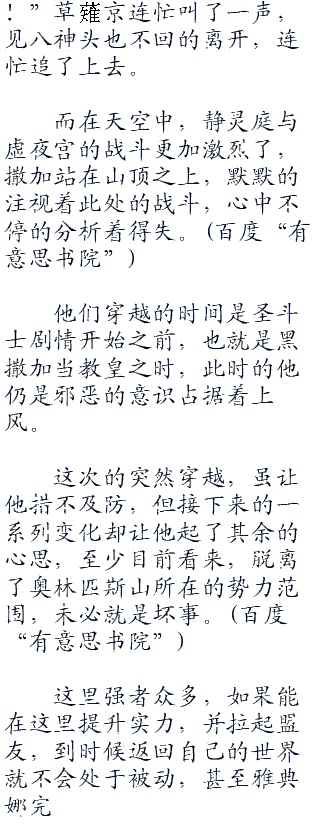 ！”草薙京连忙叫了一声，
见八神头也不回的离开，连
忙追了上去。
而在天空中，静灵庭与
虚夜宫的战斗更加激烈了，
撒加站在山顶之上，默默的
注视着此处的战斗，心中不
停的分析着得失。(百度“有
意思书院”)
他们穿越的时间是圣斗
士剧情开始之前，也就是黑
撒加当教皇之时，此时的他
仍是邪恶的意识占据着上
风。
这次的突然穿越，虽让
他措不及防，但接下来的一
系列变化却让他起了其余的
心思，至少目前看来，脱离
了奥林匹斯山所在的势力范
围，未必就是坏事。(百度
“有意思书院”)
这里强者众多，如果能
在这里提升实力，并拉起盟
友，到时候返回自己的世界
就不会处于被动，甚至雅典
娜完